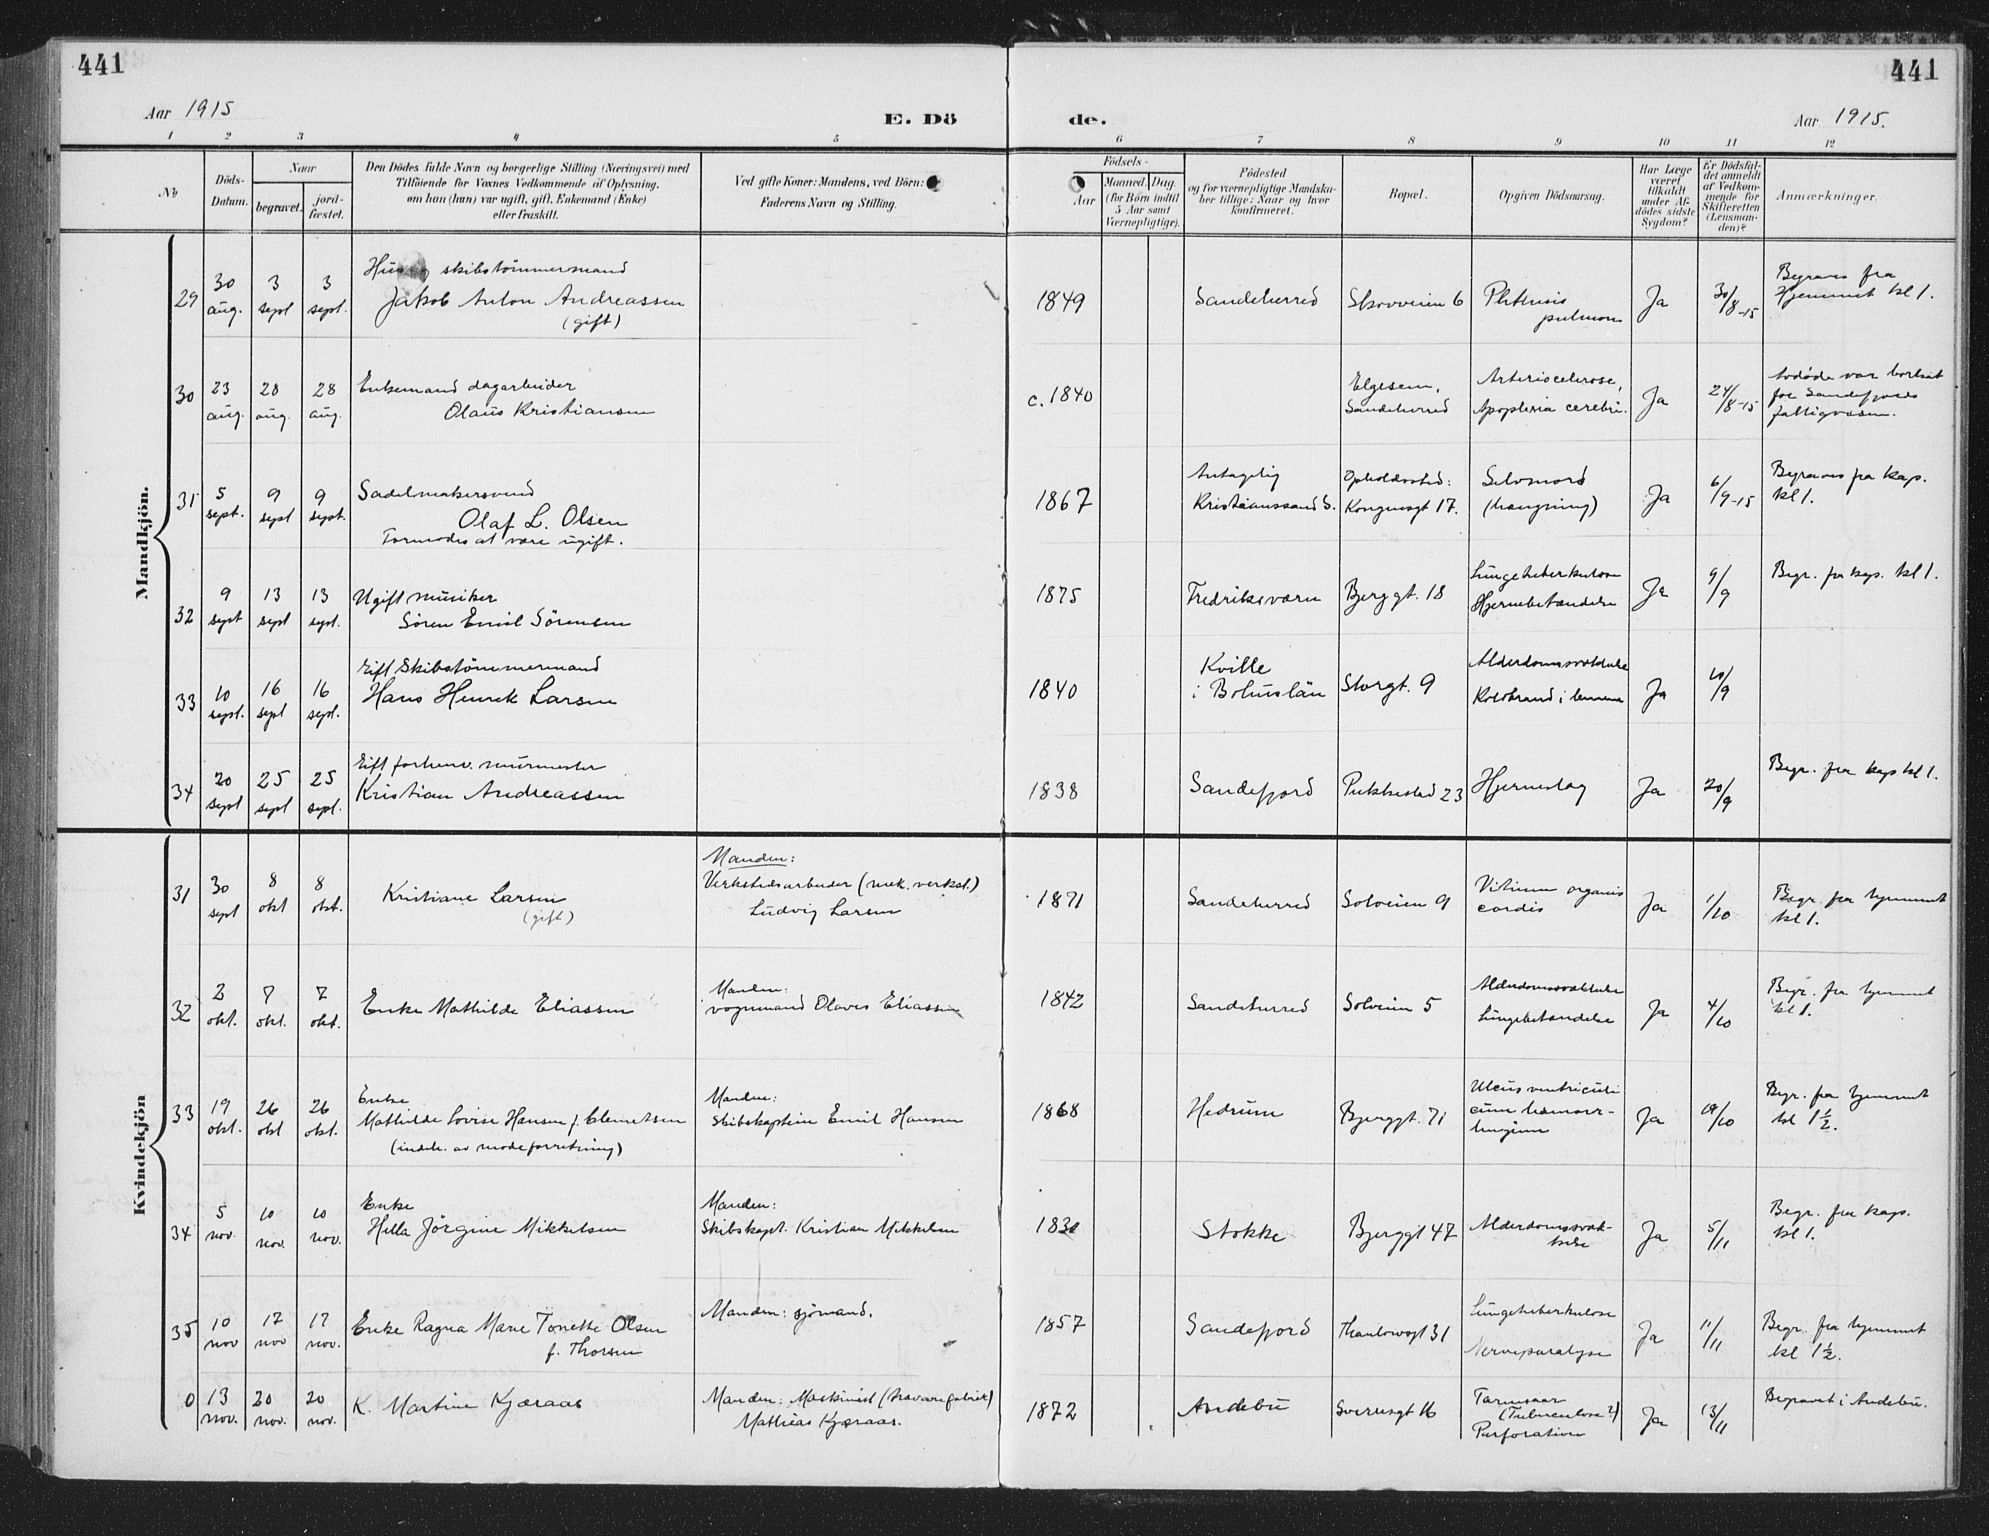 441
441
Aar 1915
E. Dö
de.
Aar 1915.
1 2 3 4 5 6 7 8 9 10 11 12
No
Döds-
Datum.
Naar
begravet.
jord-
fæstet.
Den Dödes fulde Navn og borgerlige Stilling (Næringsvei) med
Tilföiende for Voxnes Vedkommende af Oplysning,
om han (hun) var ugift, gift, Enkemand (Enke)
eller fraskilt.
Ved gifte Koner: Mandens, ved Börn:
Faderens Navn og Stilling.
Födsels-
Aar
Maaned. Dag.
(for Börn indtil
5 Aar samt
Værnepligtige).
Födested
og for værnepligtige Mandska-
ber tillige: Naar og hvor
konfirmeret.
Bopæl.
Opgiven Dödsaarsag.
Har Læge
været
tilkaldt
under Af-
dödes sidste
Sygdom?
Er Dödsfal-
det anmeldt
af Vedkom-
mende for
Skifteretten
(Lensman-
den)?
Anmærkninger.
Mandkjön.
29
30
aug.
3
sept
3
sept.
skibstömmermand
Jakob Anton Andreassen
(gift)
1849
Sandeherred
Skovveien 6
Phthisis
pulmon
Ja
30/8-15
Begraves fra
Hjemmet kl 1.
30
23
aug.
28
aug.
28
aug.
Enkemand dagarbeider
Olaus Kristiansen
c. 1840
Elgesem,
Sandeherred
Arteriosclerose,
Apoplexia cerebri.
Ja
24/8-15
Avdøde var bortsat
for Sandefjords
fattigvæsen.
31
5
sept.
9
sept
9
sept.
Sadelmakersvend
Olaf L. Olsen
Formodes at være ugift.
1867
Antagelig
Kristianssand S.
Opholdssted:
Kongensgt 17.
Selvmord
(hængning)
Ja
6/9-15
Begraves fra kap.
kl 1.
32
9
sept
13
sept
13
sept.
Ugift musiker
Sören Emil Sörensen
1875
Fredriksværn
Bjerggt. 18
Lungetuberkulose
Hjernebetændelse
Ja
9/9
Begr. fra kap. kl 1.
33
10
sept.
16
sept
16
sept.
Gift Skibstömmermand
Hans Henrik Larsen
1840
Kville
i Bohuslän
Storgt. 9
Alderdomssvakhelse
Koldbrand i lemmene
Ja
10/9
34
20
sept
25
sept
25
sept.
Gift forhenv. murmester
Kristian Andreassen
1838
Sandefjord
Pukkestad 23
Hjerneslag
Ja
20/9
Begr. fra kap kl 1.
Kvindekjön
31
30
sept
8
okt
8
okt.
Kristiane Larsen
(gift)
Manden:
Verkstedsarbeider (mek. verkst.)
Ludvig Larsen
1871
Sandeherred
Solveien 9
Vitium organis
cordis
Ja
1/10
Begr. fra hjemmet
kl 1.
32
2
okt.
7
okt.
7
okt.
Enke Mathilde Eliassen
Manden:
vognmand Olaves Eliassen
1842
Sandeherred
Solveien 5
Alderdomssvakkelse
Lungebetændelse
Ja
4/10
Begr. fra hjemmet
kl 1.
33
19
okt.
26
okt
26
okt.
Enke
Mathilde Lovise Hansen f. Clemetsen
(indeh. av modeforretning)
Manden:
Skibskaptein Emil Hansen
1868
Hedrum
Bjerggt. 71
Ulcus ventriculi
cum hæmorr-
Ja
/10
Begr. fra hjemmet
kl 1½.
34
5
nov.
10
nov.
10
nov.
Enke
Hella Jörgine Mikkelsen
Manden:
Skibskapt. Kristian Mikkelsen
Stokke
Bjerggt 47
Alderdomssvak-
kelse
Ja
5/11
Begr. fra kap.
kl 1.
35
10
nov
17
nov
17
nov.
Enke Ragna Marie Tonette Olsen
f. Thorsen
Manden: sjömand.
1857
Sandefjord
Thaulowsgt 31
Lungetuberkulose
Nerveparalyse
Ja
11/11
Begr. fra hjemmet
kl 1½.
0
13
nov.
20
nov.
20
nov.
K. Martine Kjæraas
Manden: Maskinist (trævarefabrik)
Mathias Kjæraas.
1872
Andebu
Sverresgt 16
Tarmsaar
(Tuberculose?)
Perforation
Ja
13/11
Begravet i Andebu.